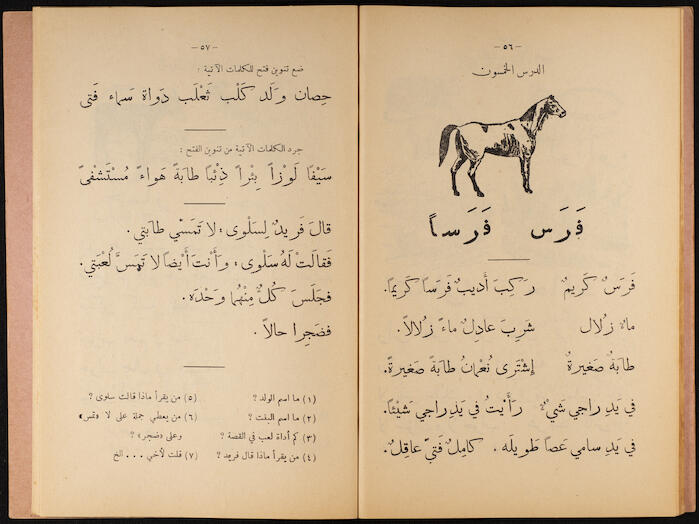 — ٥٦ —
الدرس الخمسون
فَرَس فَرَساً
فَرَسٌ كَريمٌ رَكِبَ أَديبٌ فَرَسًا كَريمًا.
ماءٌ زُلال شَرِبَ عادِلٌ ماءً زُلالاً.
طابَةٌ صَغيرةٌ إِشْتَرى نُعْمانُ طابَةً صَغيرةً.
في يَدِ راجي شَيْءٌ رَأَيْتُ في يَدِ راجي شَيْئًا.
في يَدِ سامي عَصًا طَويلَه. كامِلٌ فَتىً عاقِلٌ.
— ٥٧ —
ضع تنوين فتح للكلمات الآتية :
حِصان وَلَد كَلْب ثَعْلَب دَواة سَماء فَتى
جرد الكلمات الآتية من تنوين الفتح :
سَيْفًا لَوْزاً بِئْراً ذِئْبًا طابَةً هَواءً مُسْتَشْفىً
قالَ فَريدٌ لِسَلْوى، لا تَمَسّي طابَتي.
فَقالَتْ لَهُ سَلْوى، وَأَنْتَ أَيْضاً لا تَمَسَّ لُعْبَتي.
فَجَلَسَ كُلٌّ مِنْهُما وَحْدَه.
فَضَجِرا حالاً.
(١) ما اسم الولد ؟ (٥) من يقرأ ماذا قالت سلوى ؟
(٢) ما اسم البنت ؟ (٦) من يعطي جملة على لا «تمس»
(٣) كم أداة لعب في القصة ؟ وعلى «ضجر» ؟
(٤) من يقرأ ماذا قال فريد ؟ (٧) قلت لأخي . . . الخ